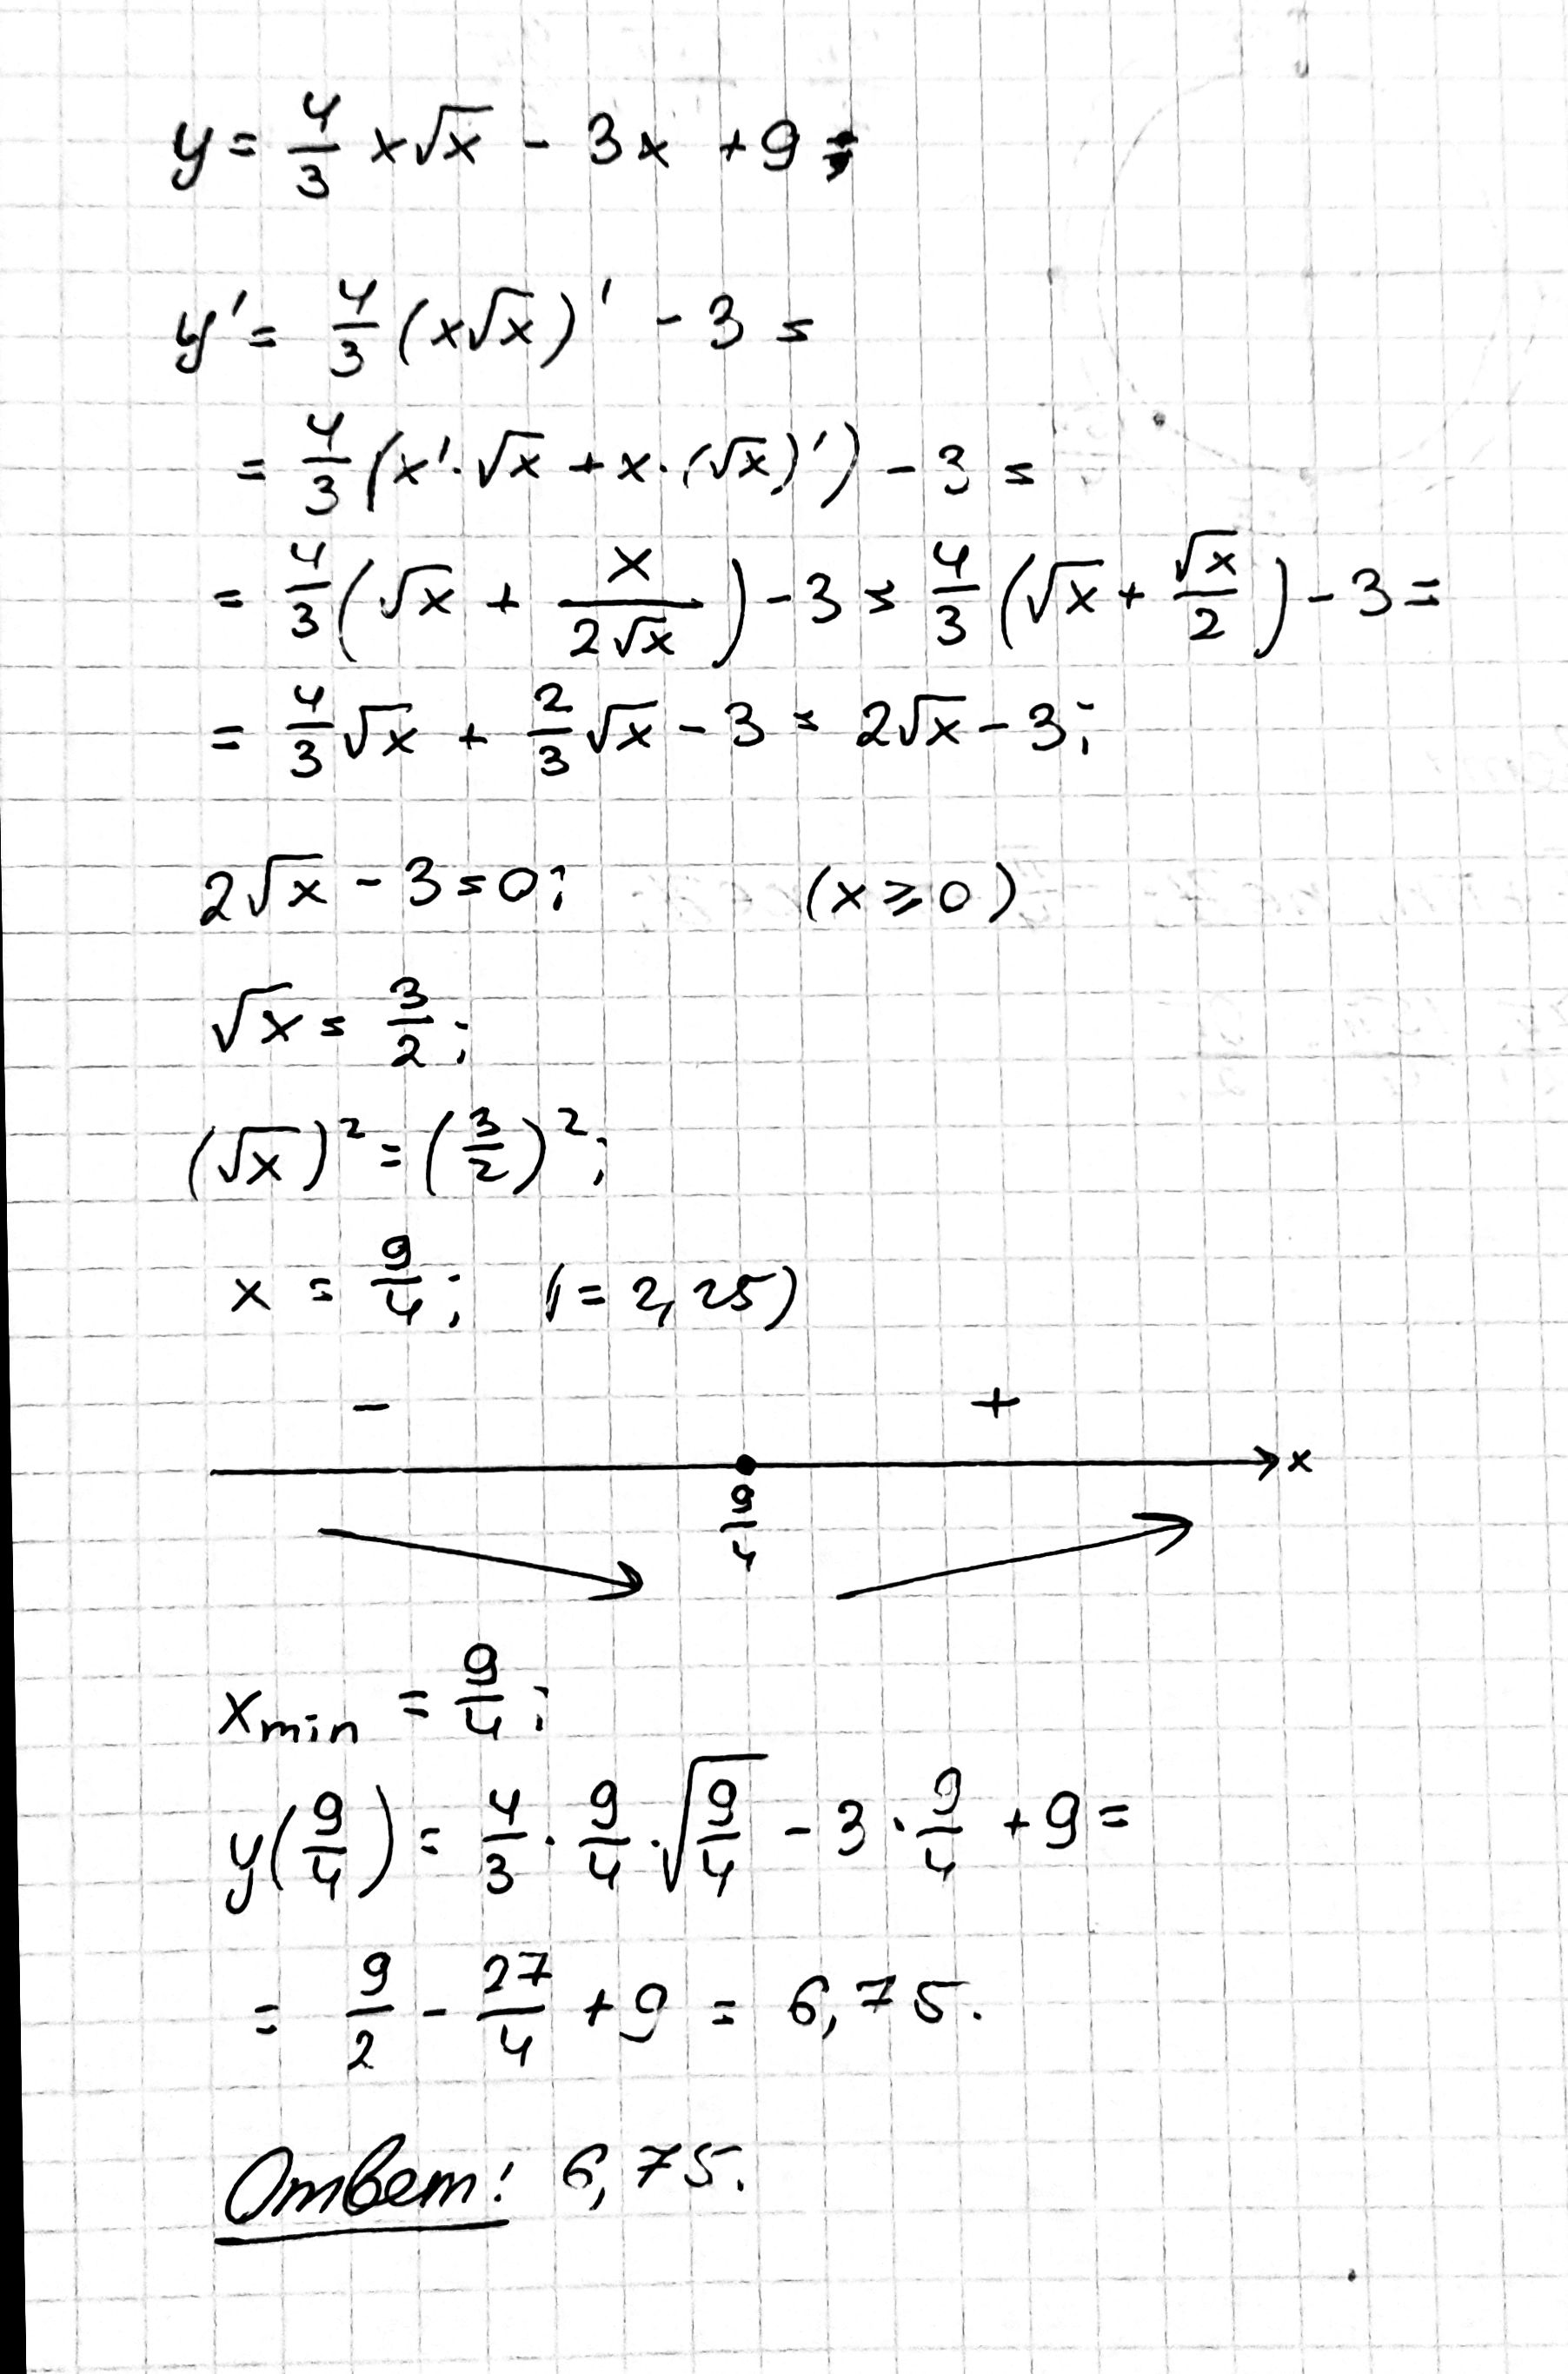 y = 4/3 x√x - 3x + 9;
y' = 4/3 (x√x)' - 3 =
= 4/3 (x'·√x + x·(√x)') - 3 =
= 4/3 (√x + x/(2√x)) - 3 = 4/3 (√x + √x/2) - 3 =
= 4/3 √x + 2/3 √x - 3 = 2√x - 3;
2√x - 3 = 0; (x ⩾ 0)
√x = 3/2;
(√x)² = (3/2)²;
x = 9/4; (= 2,25)
- +
x
9/4
xmin = 9/4;
y(9/4) = 4/3 · 9/4 · √(9/4) - 3 · 9/4 + 9 =
= 9/2 - 27/4 + 9 = 6,75.
Ответ: 6,75.